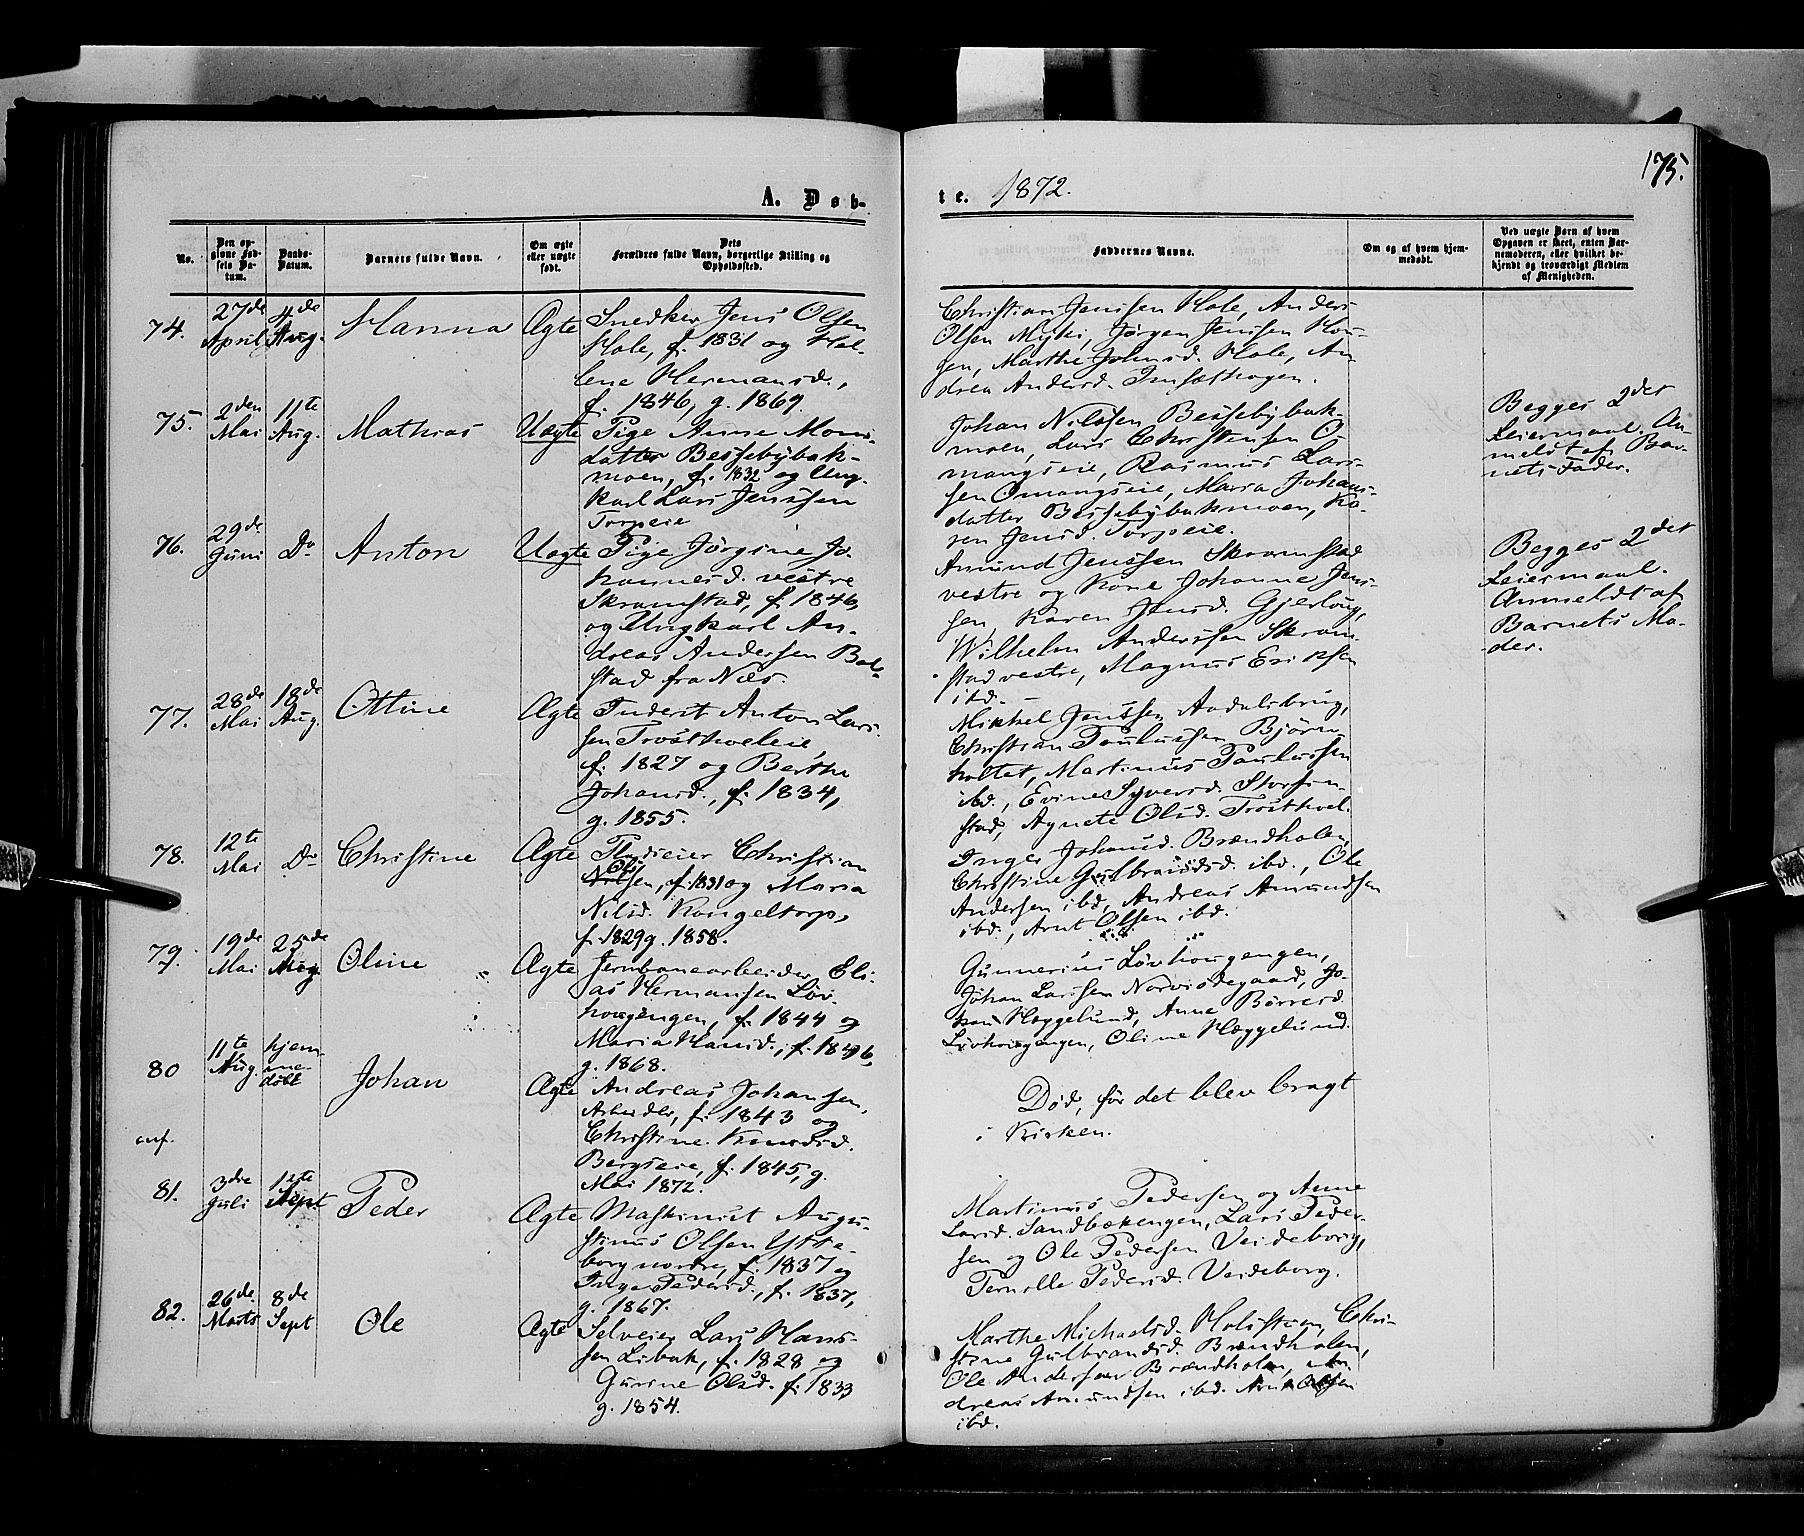 175.
A. Døb-
te. 1872.
No.
Den op-
givne Fød-
sels Da-
tum.
Daabs-
Datum.
Barnets fulde Navn.
Om ægte
eller uægte
født.
Dets
Forældres fulde Navn, borgerlige Stilling og
Opholdssted.
Faddernes Navne.
Om og af hvem hjem-
medøbt.
Ved uægte Børn af hvem
Opgaven er skeet, enten Bar-
nemoderen, eller hvilket be-
kjendt og troværdigt Medlem
af Menigheden.
74.
27de
April
4de
Aug.
Hanna
Ægte
Snedker Jens Olsen
Hole, f. 1831 og Hel-
lene Hermansd.,
f. 1846, g. 1869.
Christian Jenssen Hole, Anders
Olsen Myhr, Jørgen Jenssen Hou-
gen, Marthe Johnsd. Hole, An-
drea Andersd. Imsæthagen.
75.
2den
Mai
11te
Aug.
Mathias
Uægte
Pige Anne Mons-
datter Bessebybak-
moen, f. 1832 og Ung-
karl Lars Jenssen
Torpeie
Johan Nilssen Bessebybak-
moen, Lars Christensen O-
mangseie, Rasmus Lars-
sen Omangseie, Maria Johans-
datter Bessebybakmoen, Ka-
ren Jensd. Torpeie.
Begges 2det
Leiermaal. An-
meldt af Bar-
nets Fader.
76.
29de
Juni
Do
Anton
Uægte
Pige Jørgine Jo-
hannesd. vestre
Skramstad, f. 1846,
og Ungkarl An-
dreas Andersen Bal-
stad fra Næs.
Amund Jenssen Skramstad
vestre og Kone Johanne Jens-
sen, Karen Jensd. Gjerlaug,
Wilhelm Anderssen Skram-
stad vestre, Magnus Eriksen
ibd.
Begges 2det
Leiermaal.
Anmeldt af
Barnets Mo-
der.
77.
28de
Mai
18de
Aug.
Ottine
Ægte
Inderst Anton Lars-
sen Trostholeie,
f. 1827 og Berthe
Johansd., f. 1834,
g. 1855.
Mikkel Jenssen Aadalsbrug,
Christian Paulussen Bjørn-
holtet, Martinus Paulussen
ibd., Evine Syversd. Storsen-
stad, Agnete Olsd. Trosthoel.
78.
12te
Mai
Do
Christine
Ægte
Christian
Olsen, f. 1831 og Maria
Nilsd. Kongeltorp,
f. 1829 g. 1858.
Inger Johansd. Brændholen,
Christine Gulbrandsd. ibd., Ole
Andersen ibd., Andreas Amundsen
ibd., Arnt Olsen ibd.
79.
19de
Mai
25de
Aug.
Oline
Ægte
Jernbanearbeider Eli-
as Hermansen Løv-
hougengen, f. 1844 og
Maria Hansd., f. 1846,
g. 1868.
Gunnerius Løvhougengen,
Johan Larssen Norvisdegaard, Jo-
han Hæggelund, Anne Børresd.
Løvhougengen, Oline Hæggelund.
80
11te
Aug.
hjem-
me-
døbt
Johan
Ægte
Andreas Johansen,
Arbeider, f. 1843 og
Christine Knudsd.
Bergseie, f. 1845, g.
Mai 1872.
Død, før det blev bragt
i Kirken.
anf.
81.
3die
Juli
1ste
Sept
Peder
Ægte
Maskinist Augu-
stinus Olsen Ytte-
borg nordre, f. 1837 og
Inger Pedersd., f. 1837,
g. 1867.
Martinus Pedersen og Anne
Larsd. Sandbækengen, Lars Peder-
sen og Ole Pedersen Veideborg,
Pernille Pedersd. Veideborg.
82.
26de
Marts
8de
Sept
Ole
Ægte
Selveier Lars Hans-
sen Libak, f. 1828 og
Gurine Olsd. f. 1833
g. 1854.
Marthe Michaelsd. Holsteen, Chri-
stine Gulbrandsd. Brændholen,
Ole Andersen Brændholen, An-
dreas Amundsen ibd. Arnt Olsen
ibd.